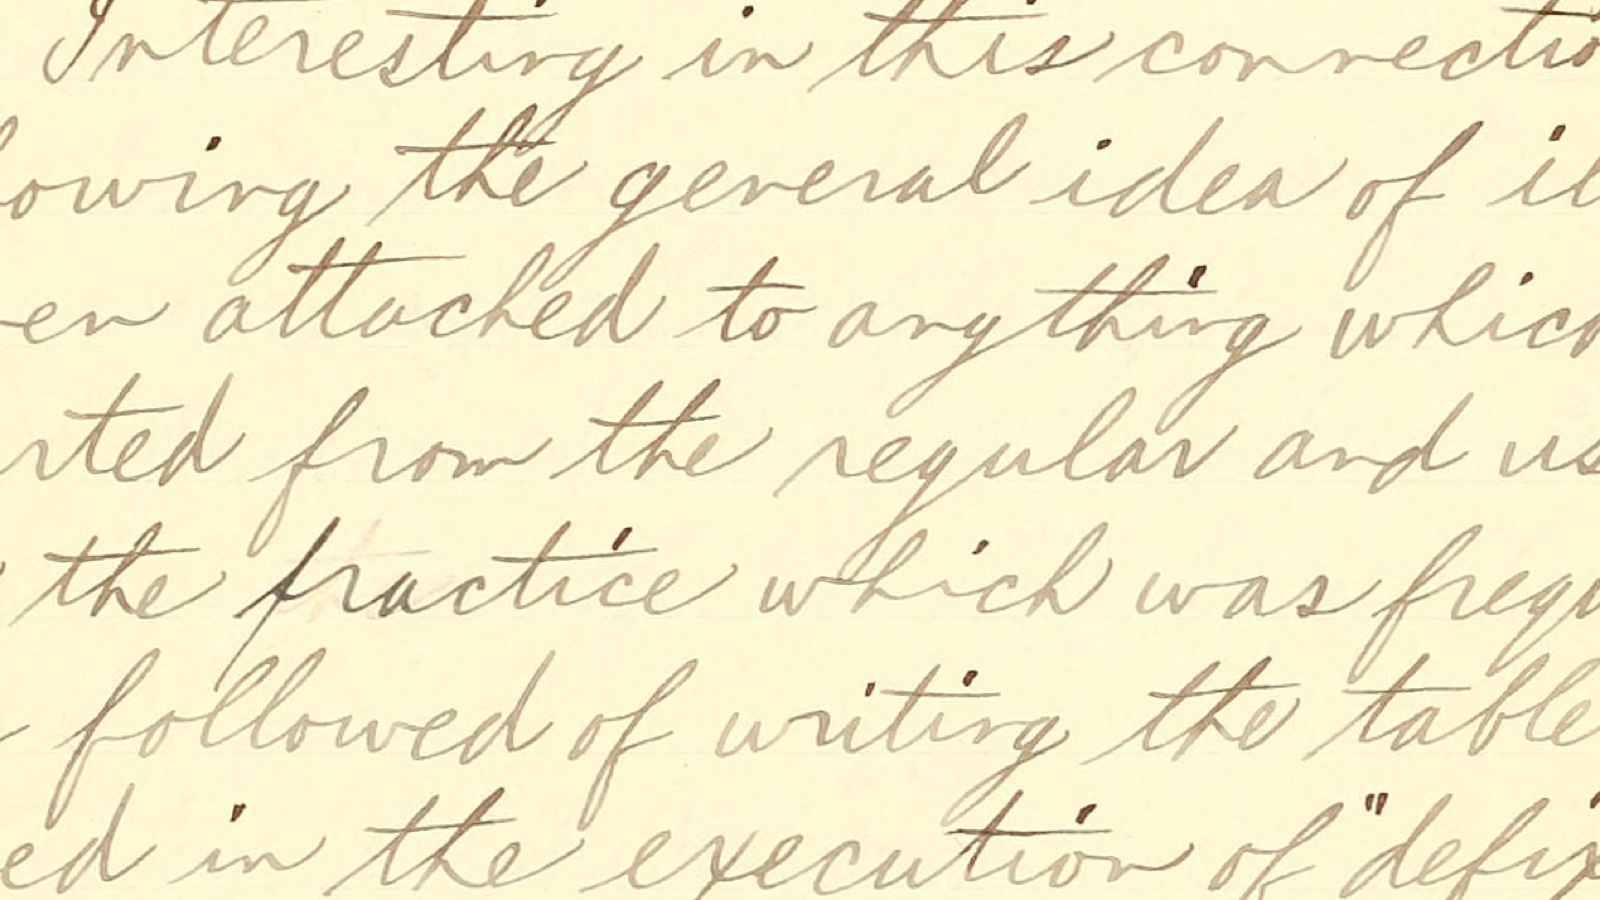 Interesting in this connectio
lowing the general idea of il
en attached to anything which
rted from the regular and us
the practice which was frequ
followed of writing the table
ed in the execution of "defix